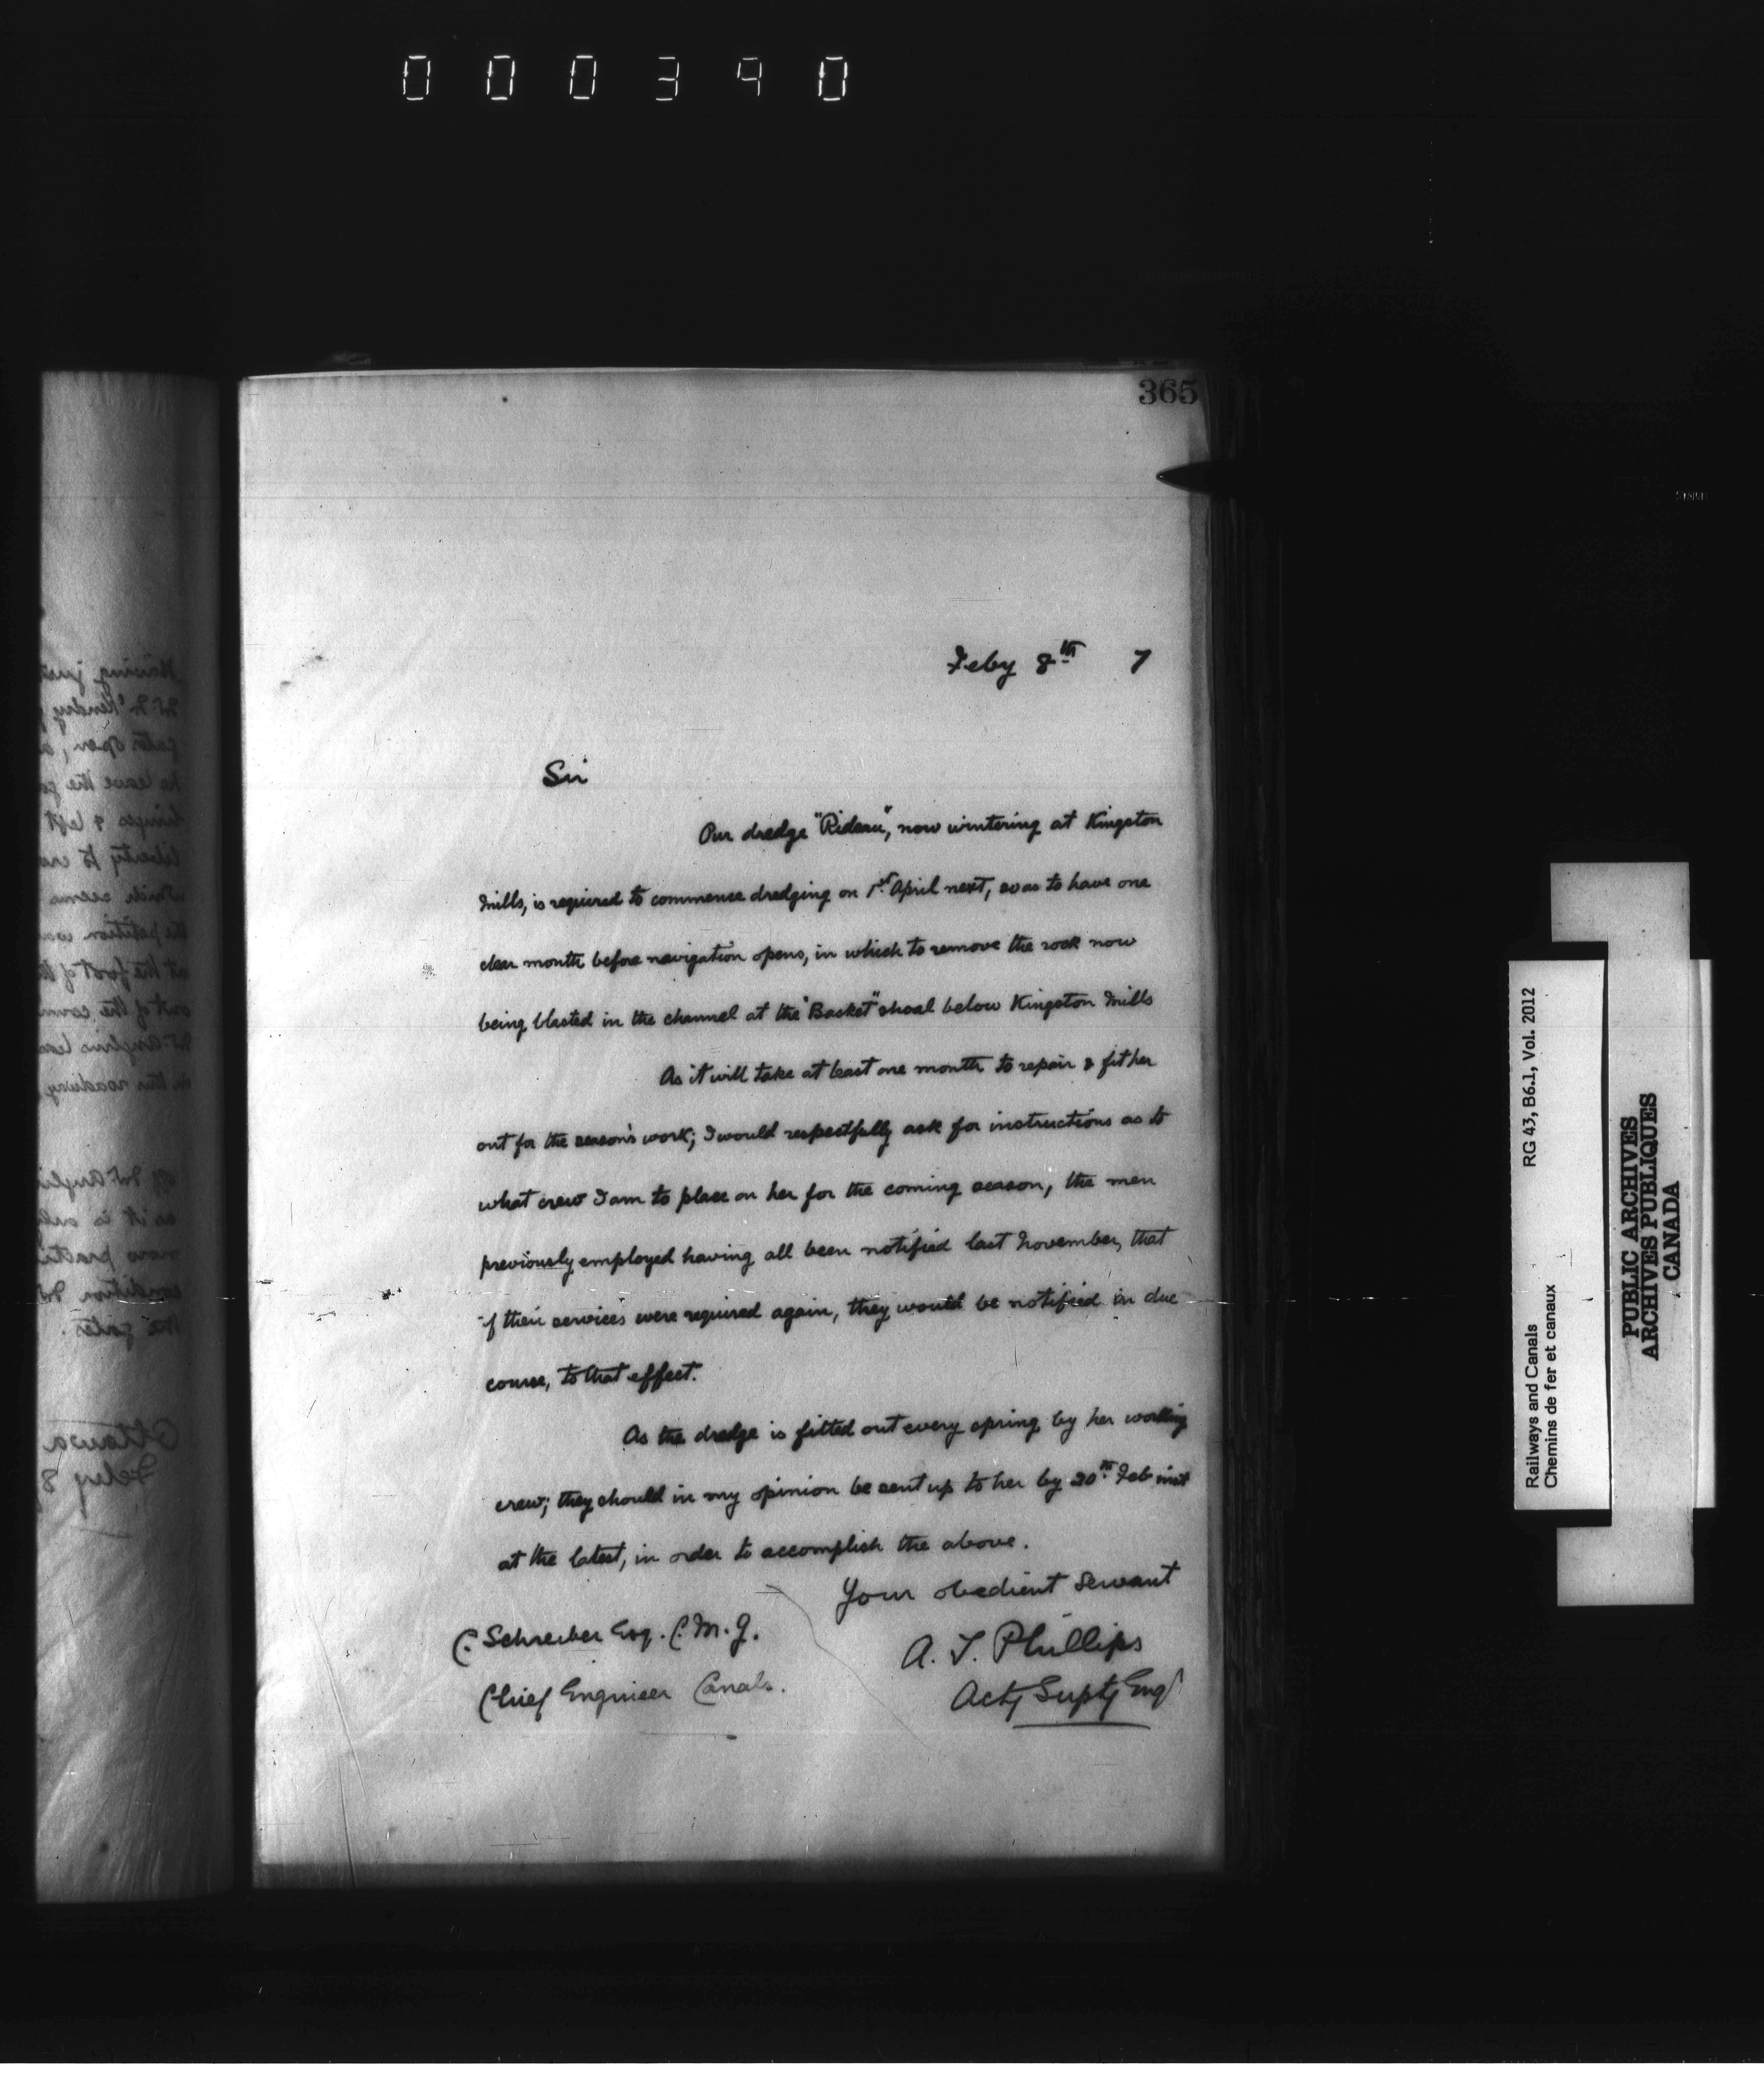 000390
365
Feby 8th 7
Sir
Our dredge "Rideau", now wintering at Kingston
Mills, is required to commence dredging on 1st April next, so as to have one
clear month before navigation opens, in which to remove the rock now
being blasted in the channel at the "Basket" shoal below Kingston Mills
As it will take at least one month to repair & fit her
out for the season's work; I would respectfully ask for instructions as to
what crew I am to place on her for the coming season, the men
previously employed having all been notified last November, that
if their services were required again, they would be notified in due
course, to that effect.
As the dredge is fitted out every spring by her working
crew; they should in my opinion be sent up to her by 20th Feb inst
at the latest, in order to accomplish the above.
Your obedient Servant
A. T. Phillips
Actg Suptg Engr
C. Schreiber Esq. C.M.G.
Chief Engineer Canals.
Railways and Canals RG 43, B6.1, Vol. 2012
Chemins de fer et canaux
PUBLIC ARCHIVES
ARCHIVES PUBLIQUES
CANADA